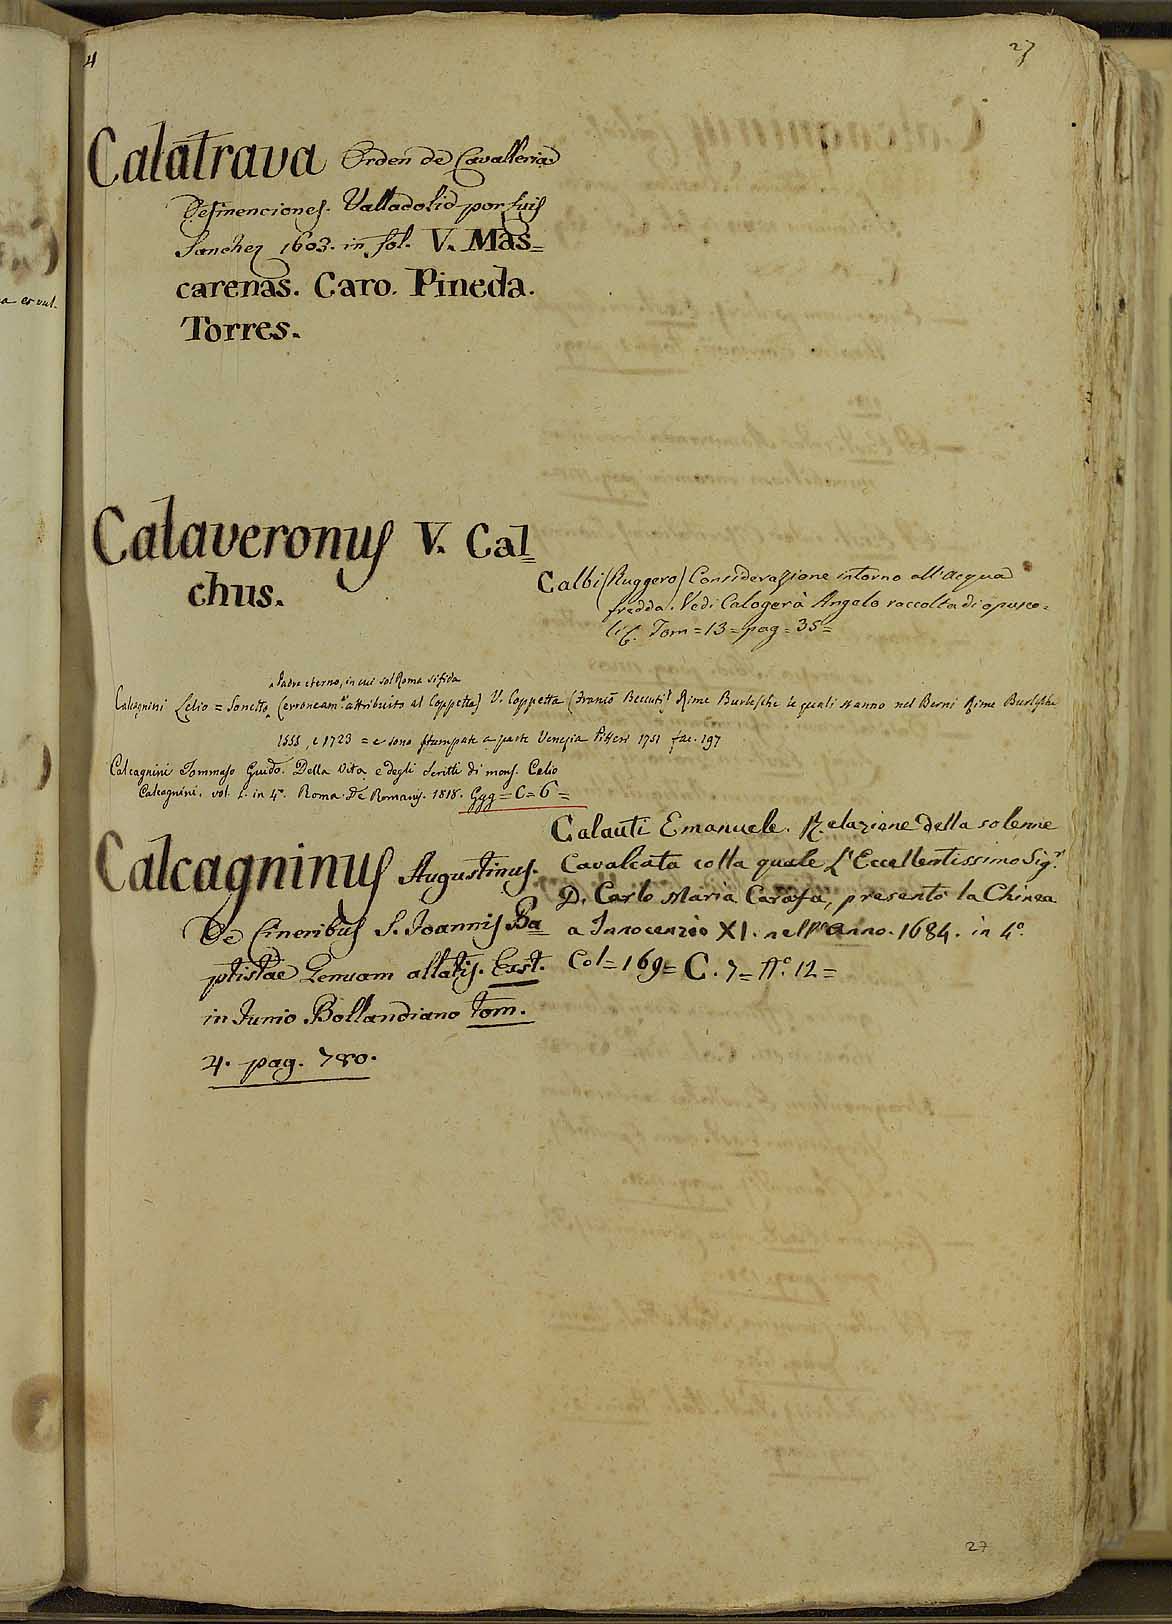 4
27
Calatrava Orden de Cavalleria
Desinenciones. Valladolid por Luis
Sanchez 1603. in fol. V. Mas=
carenas. Caro. Pineda.
Torres.
a et vul.
Calaveronus V. Cal=
chus.
Calbi (Ruggero) Considerazione intorno all'acqua
fredda. Vedi Calogerà Angelo raccolta di opusco=
li &c. Tom=13=pag=35=
Padre eterno, in cui sol Roma si fida
Calcagnini Lelio = Sonetto (erroneam.e attribuito al Coppetta) V. Coppetta (Franc.o Beccuti) Rime Burlesche le quali stanno nel Berni Rime Burlesche
1555, e 1723 = e sono stampate a parte Venezia Pitteri 1751 fac. 197
Calcagnini Tommaso Guido. Della vita e degli scritti di mons. Celio
Calcagnini. vol. 1. in 4.o Roma. De Romanis. 1818. Gyg=C=6=
Calauti Emanuele. Relazione della solenne
Cavalcata colla quale L'Eccellentissimo Sig.r
D. Carlo Maria Carafa, presentò la Chinea
a Innocenzio XI. nell'anno. 1684. in 4.o
Col=169=C.7=N.o 12=
Calcagninus Augustinus.
De Cineribus S. Joannis Ba=
ptistae Genuam allatis. Exst.
in Junio Bollandiano tom.
4. pag. 780.
27